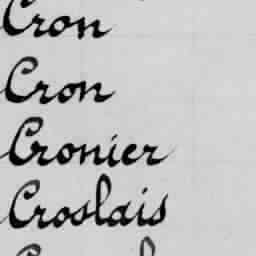 Cron
Cron
Cronier
Croslais